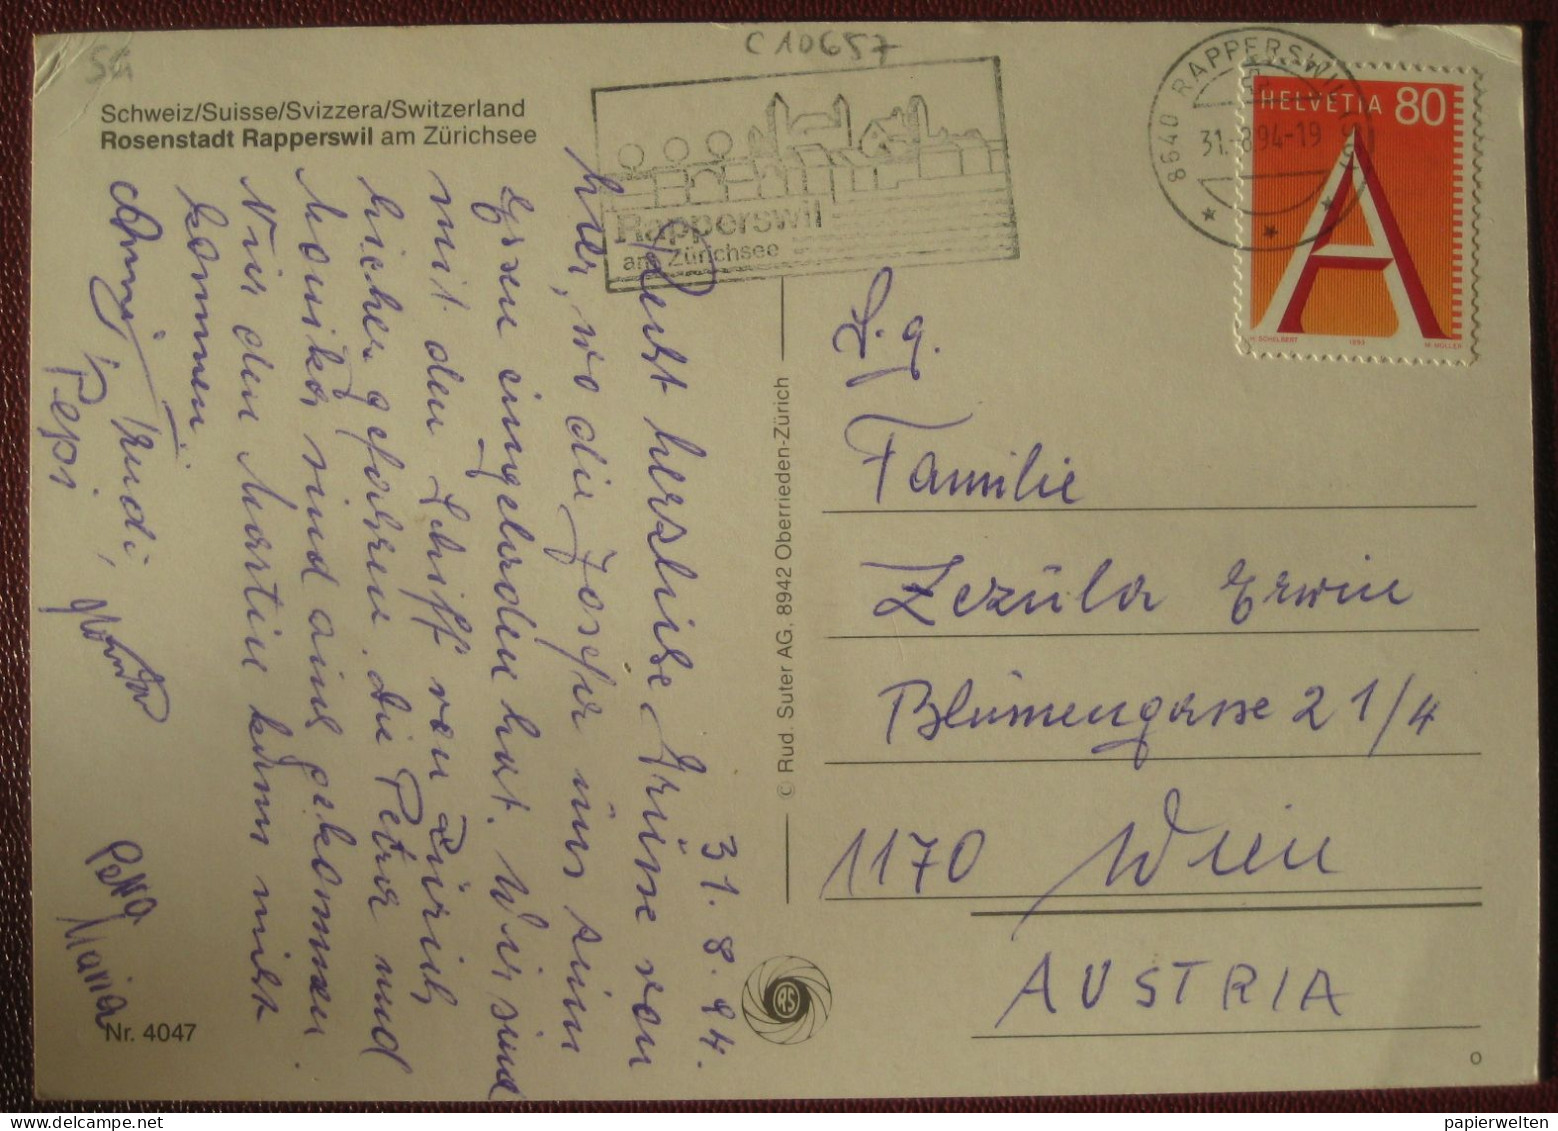 SG
C10657
Schweiz/Suisse/Svizzera/Switzerland
Rosenstadt Rapperswil am Zürichsee
Rapperswil
am Zürichsee
8640 RAPPERSWIL
31.-8.94-19
HELVETIA 80
H. SCHELBERT 1993 M. MÜLLER
31.8.94.
Recht herzliche Grüsse von
hier, wo die Josefa uns zum
Essen eingeladen hat. Wir sind
mit dem Schiff von Zürich
hieher gefahren, die Petra und
Monika sind auch gekommen.
Nur der Martin kann nicht
kommen.
Rudi,
Pepi
Petra
Maria
© Rud. Suter AG, 8942 Oberrieden-Zürich
RS
Nr. 4047
Familie
Zezula Erwin
Blumengasse 21/4
1170 Wien
AUSTRIA
O
papierwelten